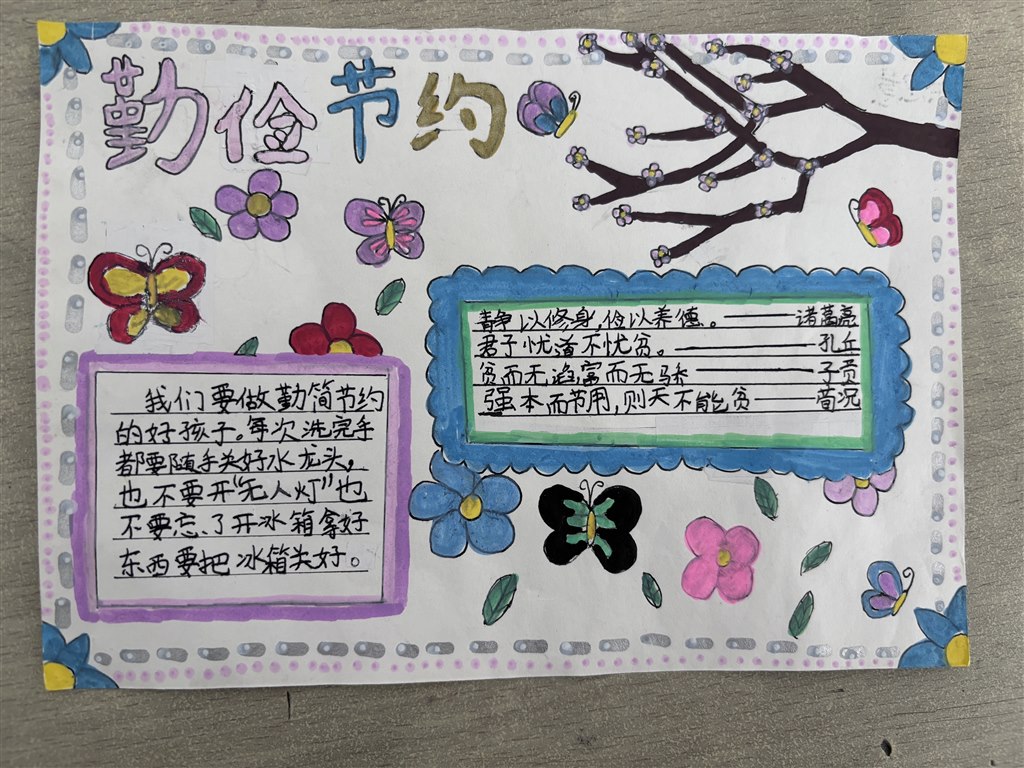 勤俭节约
静以修身,俭以养德。——诸葛亮
君子忧道不忧贫。——孔丘
贫而无谄,富而无骄——子贡
强本而节用,则天不能贫——荀况
我们要做勤简节约
的好孩子。每次洗完手
都要随手关好水龙头,
也不要开“无人灯”也
不要忘了开冰箱拿好
东西要把冰箱关好。